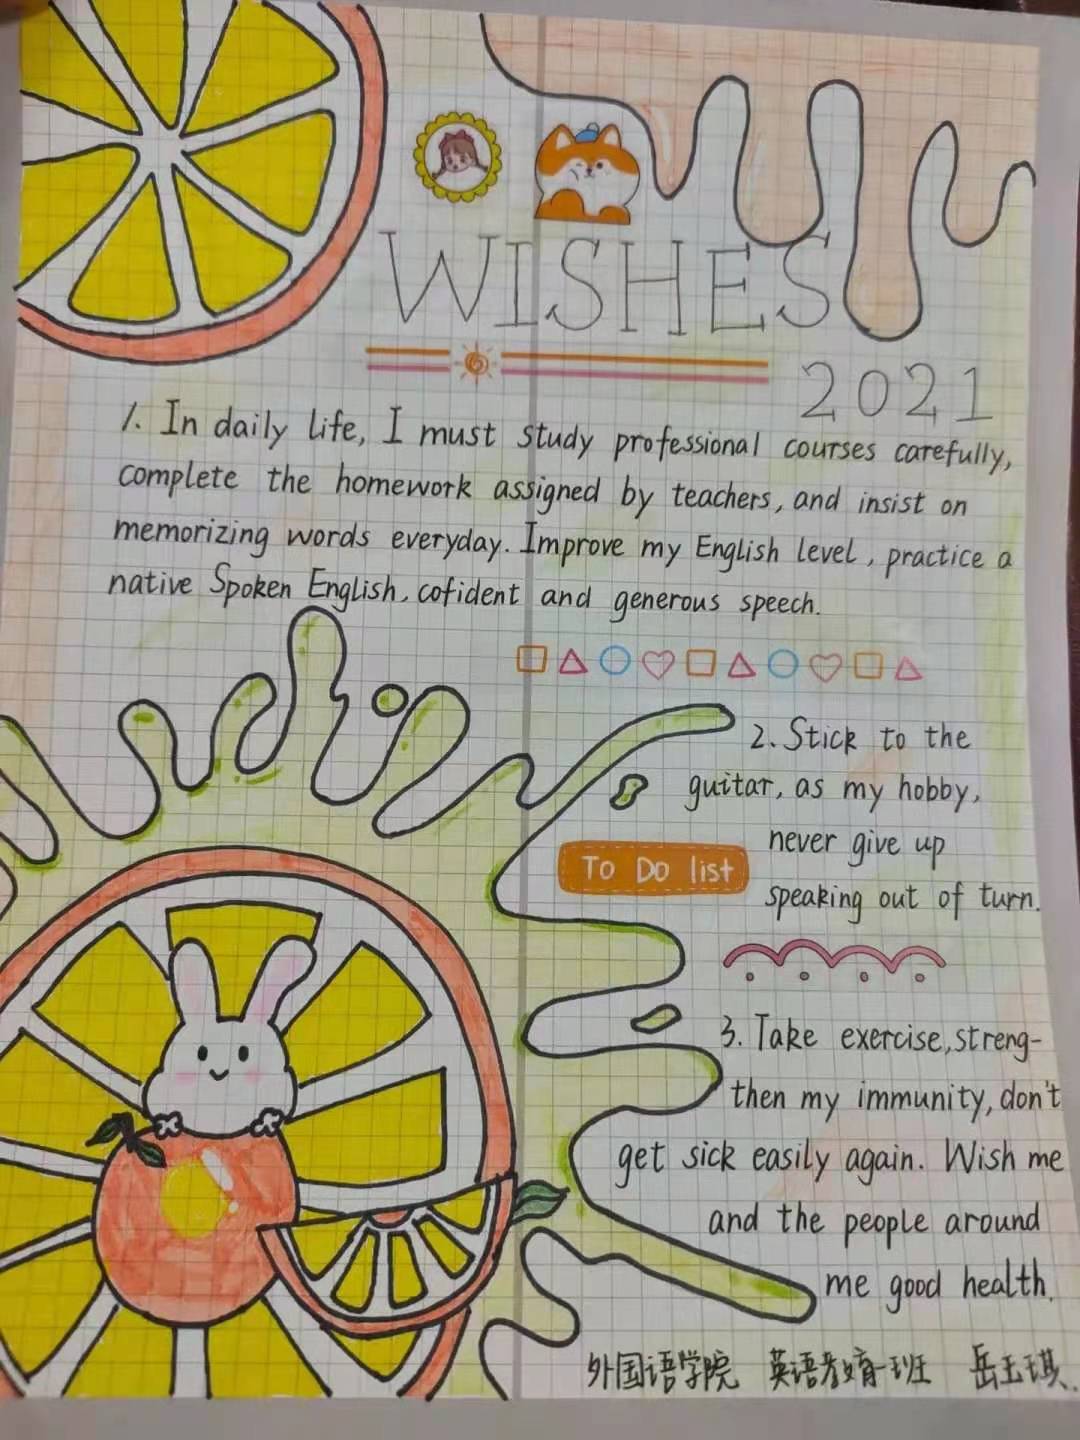 WISHES
2021
1. In daily life, I must study professional courses carefully,
complete the homework assigned by teachers, and insist on
memorizing words everyday. Improve my English level, practice a
native Spoken English, cofident and generous speech.
2. Stick to the
guitar, as my hobby,
never give up
To Do list
speaking out of turn.
3. Take exercise, streng-
then my immunity, don't
get sick easily again. Wish me
and the people around
me good health.
外国语学院 英语教育一班 岳玉琪